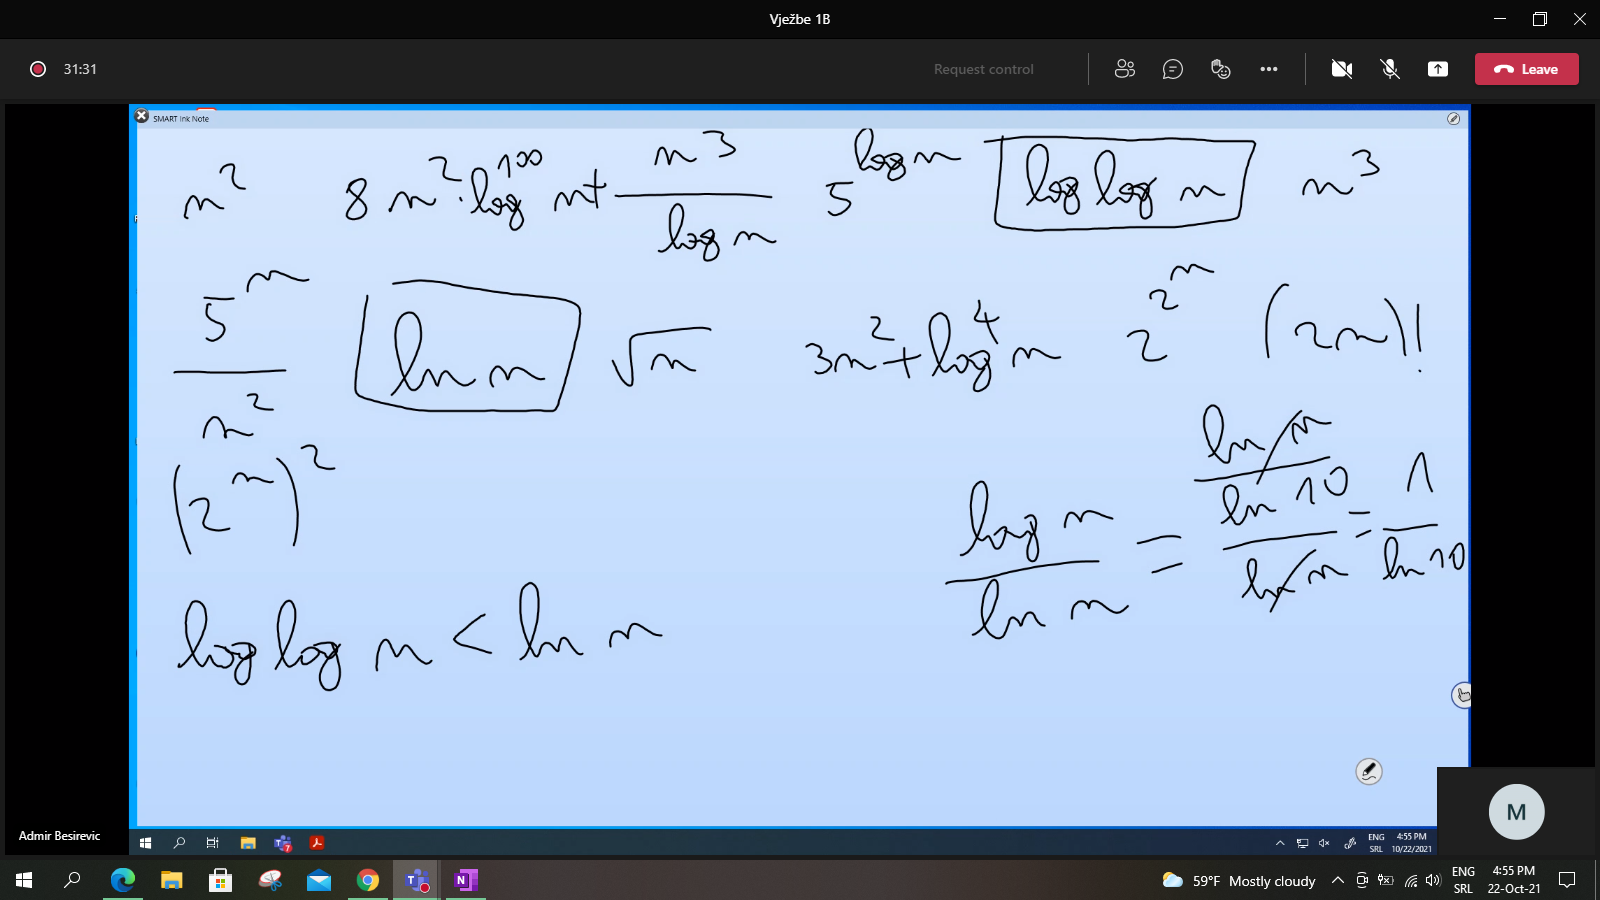 Vježbe 1B
31:31 Request control Leave
SMART Ink Note
n² 8n²·log¹⁰⁰ n + n³/log n 5^(log n) log log n n³
5^n/n² ln n √n 3n² + log⁴ n 2^(2^n) (2n)!
(2^n)²
log n/ln n = (ln n/ln 10)/ln n = 1/ln 10
log log n < ln n
M
Admir Besirevic
ENG 4:55 PM
SRL 10/22/2021
59°F Mostly cloudy
ENG 4:55 PM
SRL 22-Oct-21